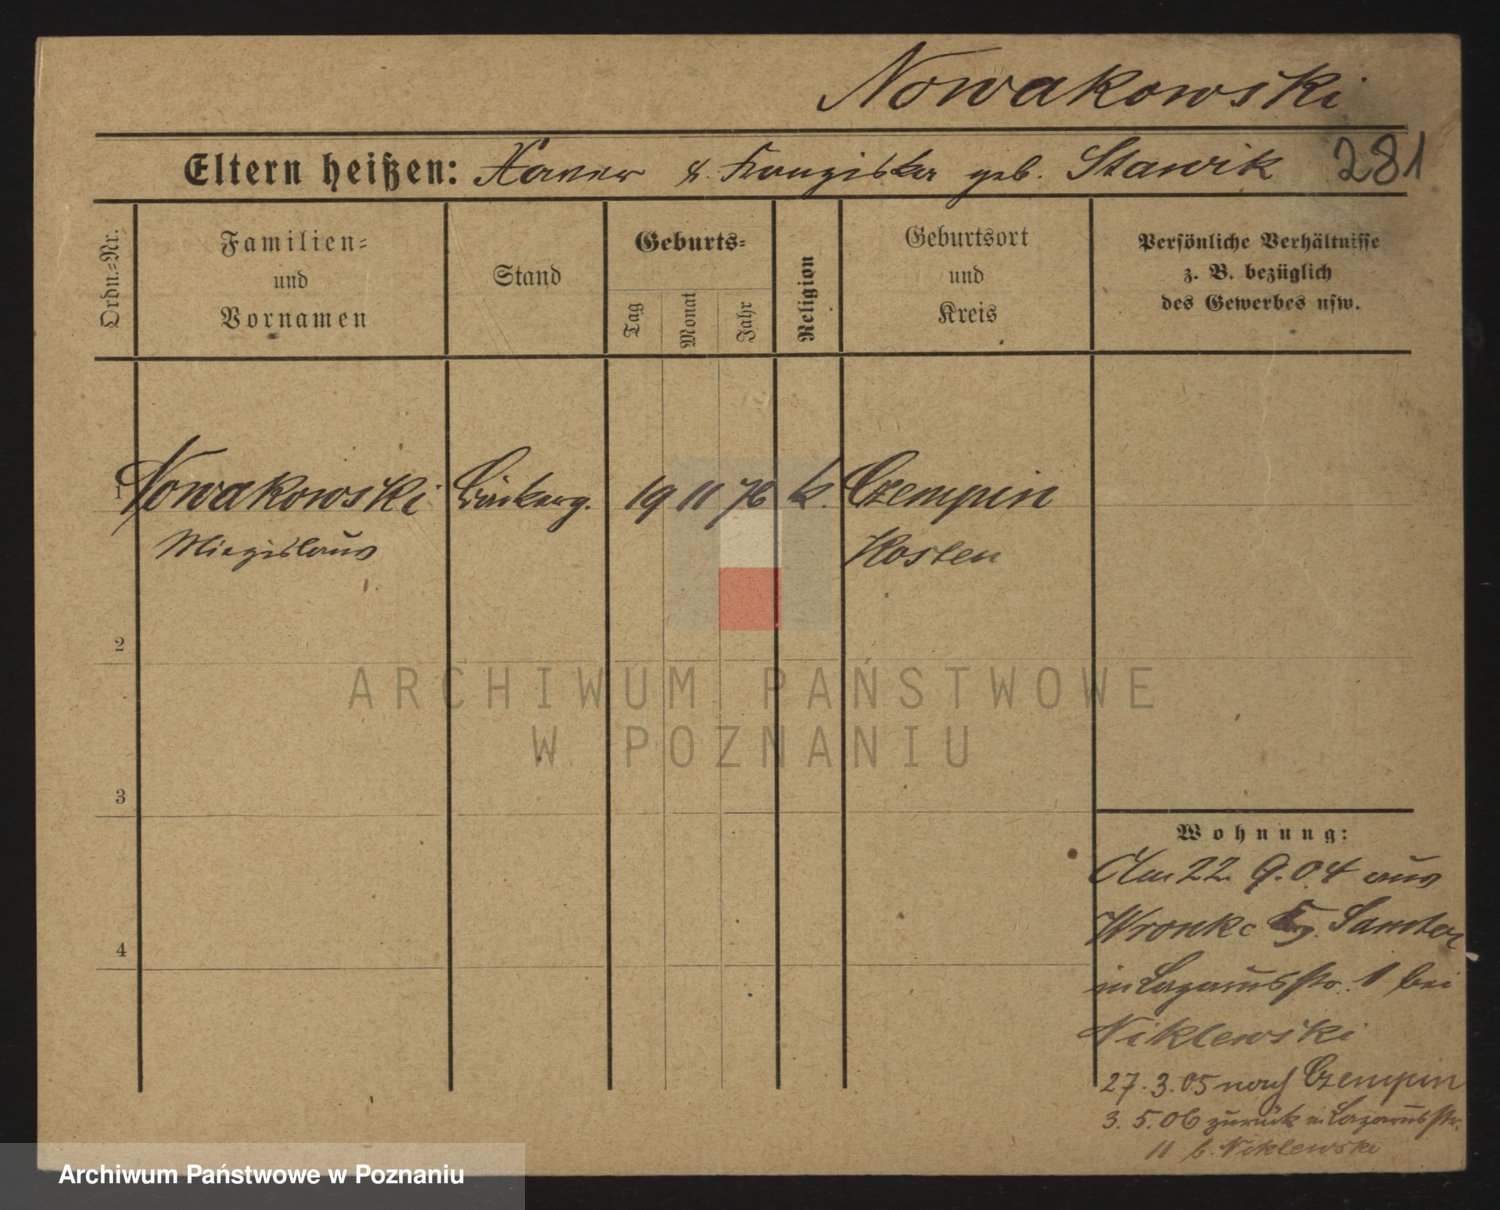 Nowakowski
Eltern heißen: Xaver & Franziska geb. Stawik 281
Ordn.-Nr.
Familien-
und
Vornamen
Stand
Geburts-
Tag
Monat
Jahr
Religion
Geburtsort
und
Kreis
Persönliche Verhältnisse
z. B. bezüglich
des Gewerbes usw.
1 Nowakowski Bäckerg. 19 11 76 k. Czempin
Miezislaus Kosten
2
3
4
ARCHIWUM PAŃSTWOWE
W POZNANIU
Wohnung:
Am 22. 9. 04 aus
Wronke Samter
in Lazarusstr. 1 bei
Niklewski
27. 3. 05 nach Czempin
3. 5. 06 zurück in Lazarusstr.
11 b. Niklewski
Archiwum Państwowe w Poznaniu